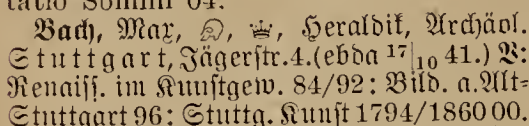 tatio Somnii 04.
Bach, Max, Heraldik, Archäol.
Stuttgart, Jägerstr. 4. (ebda 17|10 41.) V:
Renaiss. im Kunstgew. 84/92: Bild. a. Alt=
Stuttgart 96: Stuttg. Kunst 1794/1860 00.